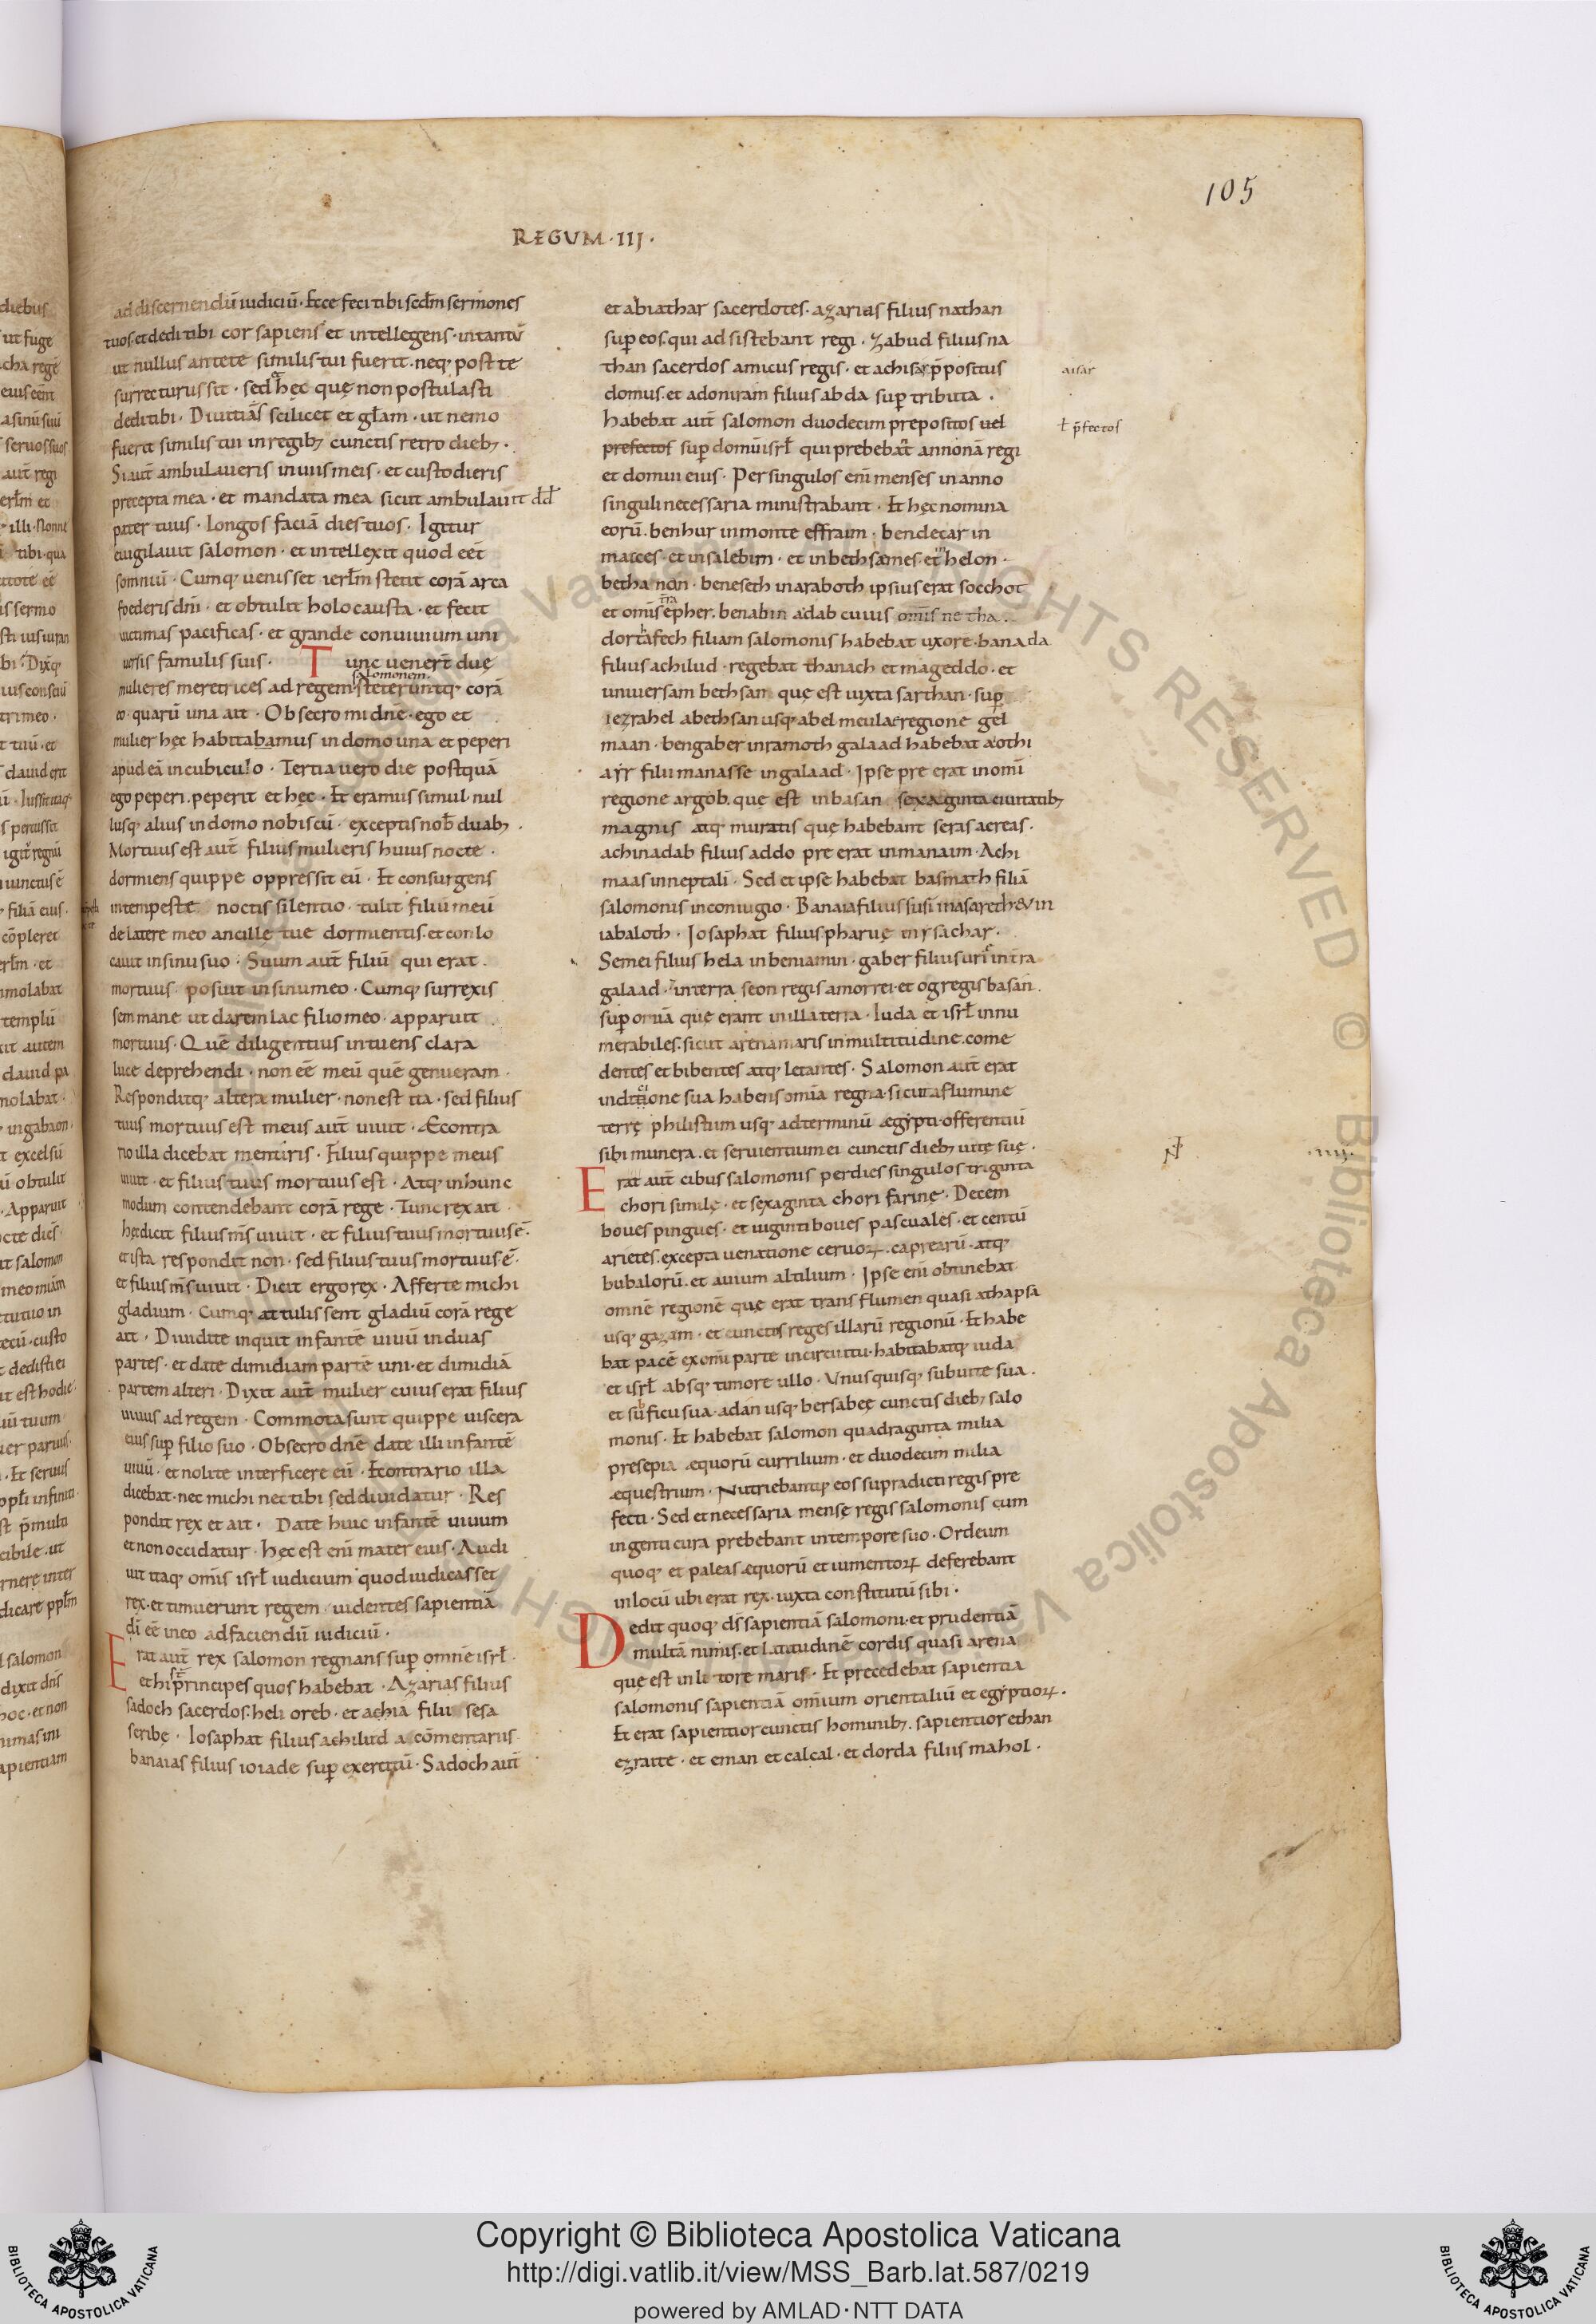 105
REGUM · III ·
ad discernendū iudiciū · Ecce feci tibi scdm̄ sermones
tuos. et dedi tibi cor sapiens et intellegens · in tantū
ut nullus ante te similis tui fuerit. neq; post te
surrecturus sit · sed & hęc quę non postulasti
dedi tibi · Diuitias scilicet et glām · ut nemo
fuerit similis tui in regib; cunctis retro dieb; ·
Si aut̄ ambulaueris in uiis meis · et custodieris
precepta mea · et mandata mea sicut ambulauit dd̄
pater tuus · longos faciā dies tuos · Igitur
euigilauit salomon · et intellexit quod eēt
somniū · Cumq; uenisset ierlm̄ stetit corā arca
foederis dn̄i · et obtulit holocausta · et fecit
uictimas pacificas · et grande conuiuium uni
uersis famulis suis · Tunc uener̄t duę
mulieres meretrices ad regem salomonem. steteruntq; corā
eo · quarū una ait · Obsecro mi dn̄e · ego et
mulier hęc habitabamus in domo una et peperi
apud eā in cubiculo · Tertia uero die postquā
ego peperi. peperit et hęc · Et eramus simul · nul
lusq; alius in domo nobiscū · exceptis nob̄ duab; ·
Mortuus est aut̄ filius mulieris huius nocte ·
dormiens quippe oppressit eū · Et consurgens
intempeste noctis silentio · tulit filiū meū
de latere meo ancille tue dormientis. et conlo
cauit in sinu suo · Suum aut̄ filiū qui erat
mortuus · posuit in sinu meo · Cumq; surrexis
sem mane ut darem lac filio meo · apparuit
mortuus · Quē diligentius intuens clara
luce deprehendi · non eē meū quē genueram ·
Responditq; altera mulier · non est ita · sed filius
tuus mortuus est meus aut̄ uiuit · Æcontra
rio illa dicebat mentiris · Filius quippe meus
uiuit · et filius tuus mortuus est · Atq; in hunc
modum contendebant corā rege · Tunc rex ait
hęc dicit filius ms̄ uiuit · et filius tuus mortuus ē ·
et ista respondit non · sed filius tuus mortuus ē ·
et filius ms̄ uiuit · Dicit ergo rex · Afferte michi
gladium · Cumq; attulissent gladiū corā rege
ait · Diuidite inquit infantē uiuū in duas
partes · et date dimidiam partē uni · et dimidiā
partem alteri · Dixit aut̄ mulier cuius erat filius
uiuus ad regem · Commota sunt quippe uiscera
eius sup̄ filio suo · Obsecro dn̄e date illi infantē
uiuū · et nolite interficere eū · Econtrario illa
dicebat · nec michi nec tibi sed diuidatur · Res
pondit rex et ait · Date huic infantē uiuum
et non occidatur · hęc est eni᷎ mater eius · Audi
uit itaq; omīs isrl̄ iudicium quod iudicasset
rex · et timuerunt regem uidentes sapientiā
dī eē in eo ad faciendū iudiciū ·
Erat aut̄ rex salomon regnans sup̄ omnē isrl̄ ·
et hi st̄ principes quos habebat · Azarias filius
sadoch sacerdos. heli oreb · et achia filii sesa
scribę · Iosaphat filius achilud a cōmentariis
banaias filius ioiade sup̄ exercitū · Sadoch aut̄
et abiathar sacerdotes · azarias filius nathan
sup̄ eos. qui adsistebant regi · Zabud filius na
than sacerdos amicus regis · et achisar p̄positus
aisar
domus. et adoniram filius abda sup̄ tributa ·
habebat aut̄ salomon duodecim prepositos uel
ł p̄fectos
prefectos sup̄ domū isrl̄ qui prebebant annonā regi
et domui eius · Per singulos eni᷎ menses in anno
singuli necessaria ministrabant · Et hęc nomina
eorū. benhur in monte effraim · bendecar in
macces · et in salebim · et in bethsames · et in helon ·
bethanan · beneseth in araboth ipsius erat socchot
et omīs tr̄ra epher. benabin adab cuius omīs netha
dor tafech filiam salomonis habebat uxorē · banada
filius achilud · regebat thanach et mageddo · et
uniuersam bethsan quę est iuxta sarthan · sup̄
iezrahel a bethsan usq; abel meula e regione gel
maan · bengaber in ramoth galaad habebat aothi
ayr filii manasse in galaad · Ipse pre erat in omī
regione argob. quę est in basan sexaginta ciuitatib;
magnis atq; muratis quę habebant seras aereas ·
achinadab filius addo pre erat in manaim · Achi
maas in neptali · Sed et ipse habebat basmath filiā
salomonis in coniugio · Banaia filius susi in asareth & in
iabaloth · Iosaphat filius pharuę in ysachar ·
Semei filius hela in beniamin · gaber filius uri in tr̄a
galaad · in terra seon regis amorrei · et og regis basan.
sup̄ om̄ia quę erant in illa terra · Iuda et isrl̄ innu
merabiles. sicut arena maris in multitudine. come
dentes et bibentes atq; letantes · Salomon aut̄ erat
in ditione sua habens omīa regna · sicut a flumine
terrę philistiim usq; ad terminū ægypti · offerentiū
sibi munera. et seruientium ei cunctis dieb; uitę suę ·
· IIII ·
Erat aut̄ cibus salomonis per dies singulos triginta
chori similę · et sexaginta chori farinę · Decem
boues pingues · et uiginti boues pascuales · et centū
arietes. excepta uenatione ceruoꝝ · caprearū · atq;
bubalorū. et auium altilium · Ipse eni᷎ obtinebat
omnē regionē quę erat trans flumen quasi a thapsa
usq; gazam · et cunctos reges illarū regionū · Et habe
bat pacē ex omi parte in circuitu · habitabatq; iuda
et isrl̄ absq; timore ullo · Vnusquisq; sub uite sua ·
et sub ficu sua · a dan usq; bersabeę cunctis dieb; salo
monis · Et habebat salomon quadraginta milia
presepia æquorū currilium · et duodecim milia
æquestrium · Nutriebantq; eos supradicti regis pre
fecti · Sed et necessaria mensę regis salomonis cum
ingenti cura prebebant in tempore suo · Ordeum
quoq; et paleas æquorū et iumentoꝝ deferebant
in locū ubi erat rex · iuxta constitutū sibi ·
Dedit quoq; ds̄ sapientiā salomoni · et prudentiā
multā nimis. et latitudinē cordis quasi arena
quę est in litore maris · Et precedebat sapientia
salomonis sapientiā omīum orientaliū et egyptioꝝ ·
Et erat sapientior cunctis hominib; . sapientior ethan
ezraite · et eman et calcal · et dorda filiis mahol ·
Copyright © Biblioteca Apostolica Vaticana
http://digi.vatlib.it/view/MSS_Barb.lat.587/0219
powered by AMLAD·NTT DATA